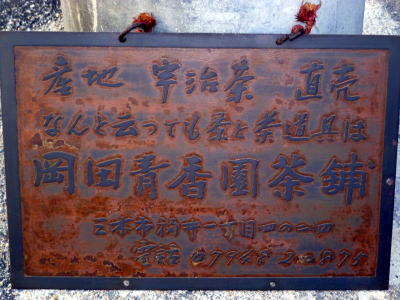 産地 宇治茶 直売
なんと云っても茶と茶道具は
岡田青香園茶舗
三木市福井一丁目四の二四
電話 07948 2 0875